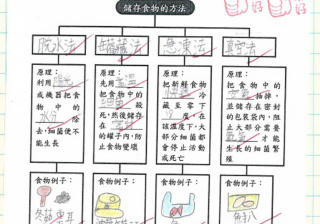 儲存食物的方法
好
好
脫水法
罐藏法
急凍法
真空法
原理：
利用
或機器把食
物中的
水分除
去，細菌便不
能生長
原理：
先用高溫
把食物中的
細菌殺
死，然後儲存
在
的罐子內，防
止食物變壞
原理：
把新鮮食物
冷
藏至零下
度，在
該溫度下，大
部分細菌都
會停止活動
或死亡
原理：
把食物中的
空氣抽掉，
並儲存在密封
的包裝袋內，
阻止大部分需要
才能
生長的細菌繁
殖
食物例子：
冬菇
食物例子：
食物例子：
食物例子：